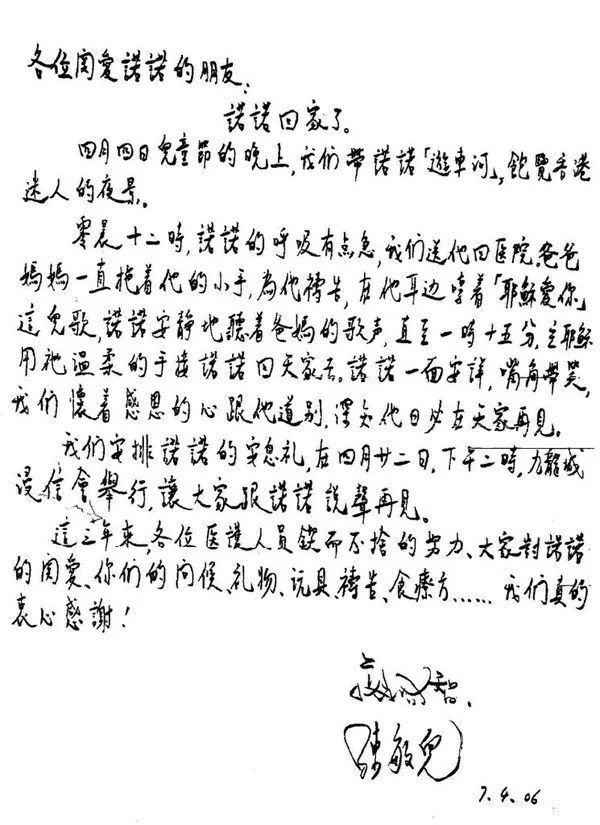 各位関愛諾諾的朋友：
諾諾回家了。
四月四日兒童節的晚上，我們帶諾諾「遊車河」，飽覽香港
迷人的夜景。
零晨十二時，諾諾的呼吸有点急，我們送他回医院。爸爸
媽媽一直抱着他的小手，為他禱告，在他耳边唱着「耶穌愛你」
這兒歌，諾諾安静地聽着爸媽的歌声，直至一時十五分，主耶穌
用祂温柔的手接諾諾回天家去。諾諾一面安詳，嘴角帶笑，
我們懷着感恩的心跟他道别，深知他日必在天家再見。
我們安排諾諾的安息礼，在四月廿二日，下午二時，九龍城
浸信會舉行，讓大家跟諾諾説聲再見。
這三年來，各位医護人员鍥而不捨的努力、大家對諾諾
的関愛、你們的问候、礼物、玩具、禱告、食療方…… 我們真的
衷心感謝！
陳敏兒
7.4.06